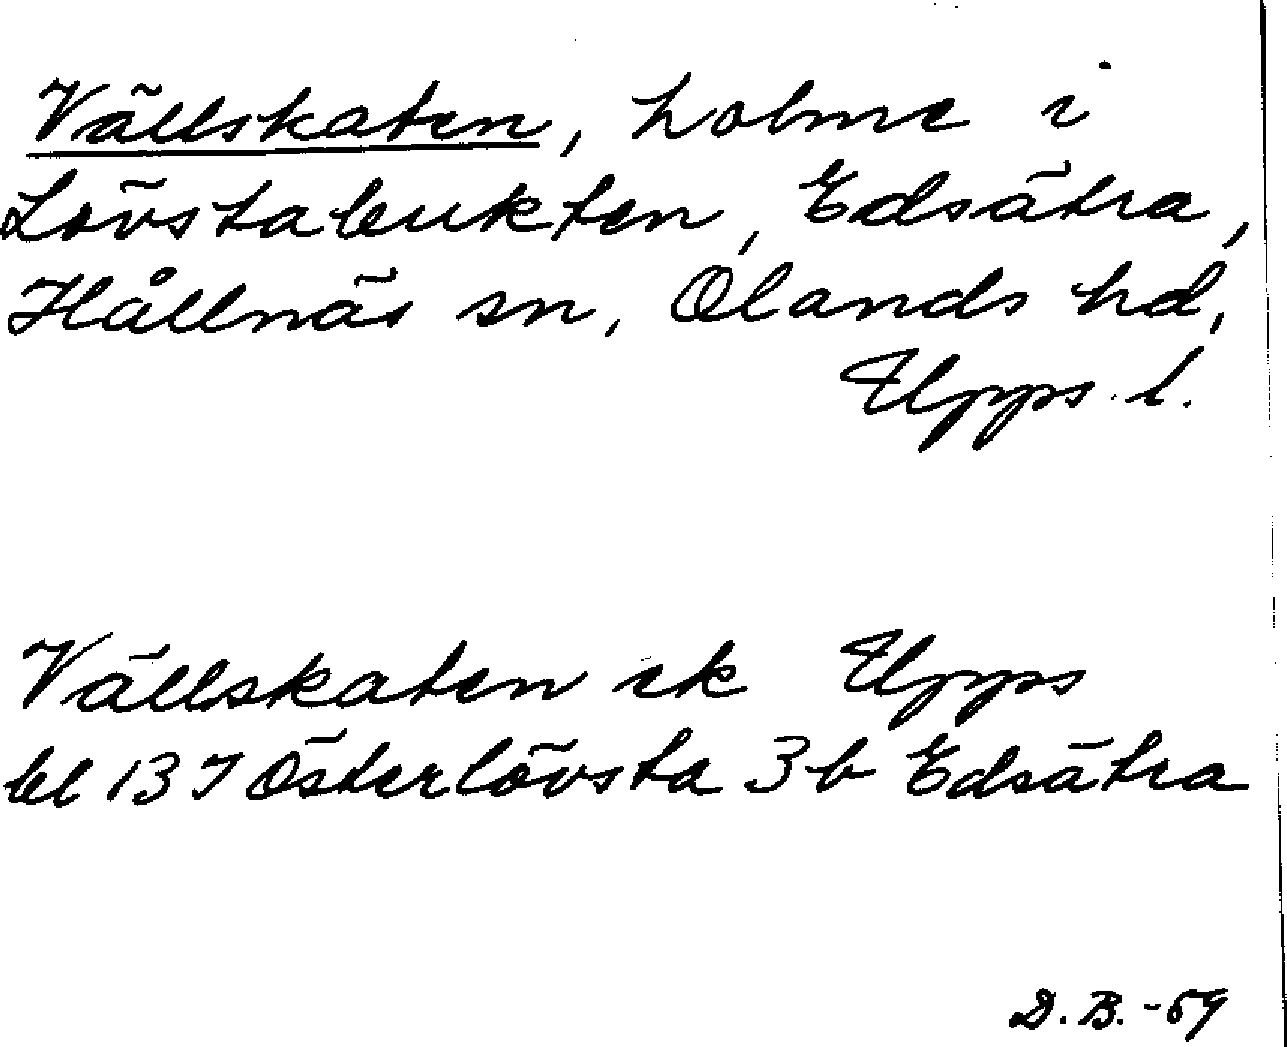 Vällskaten, holme i
Lövstabukten, Edsätra,
Hållnäs sn, Olands hd,
Upps. l.
Vällskaten ek Upps
bl 13 I Österlövsta 3b Edsätra
D.B.-69